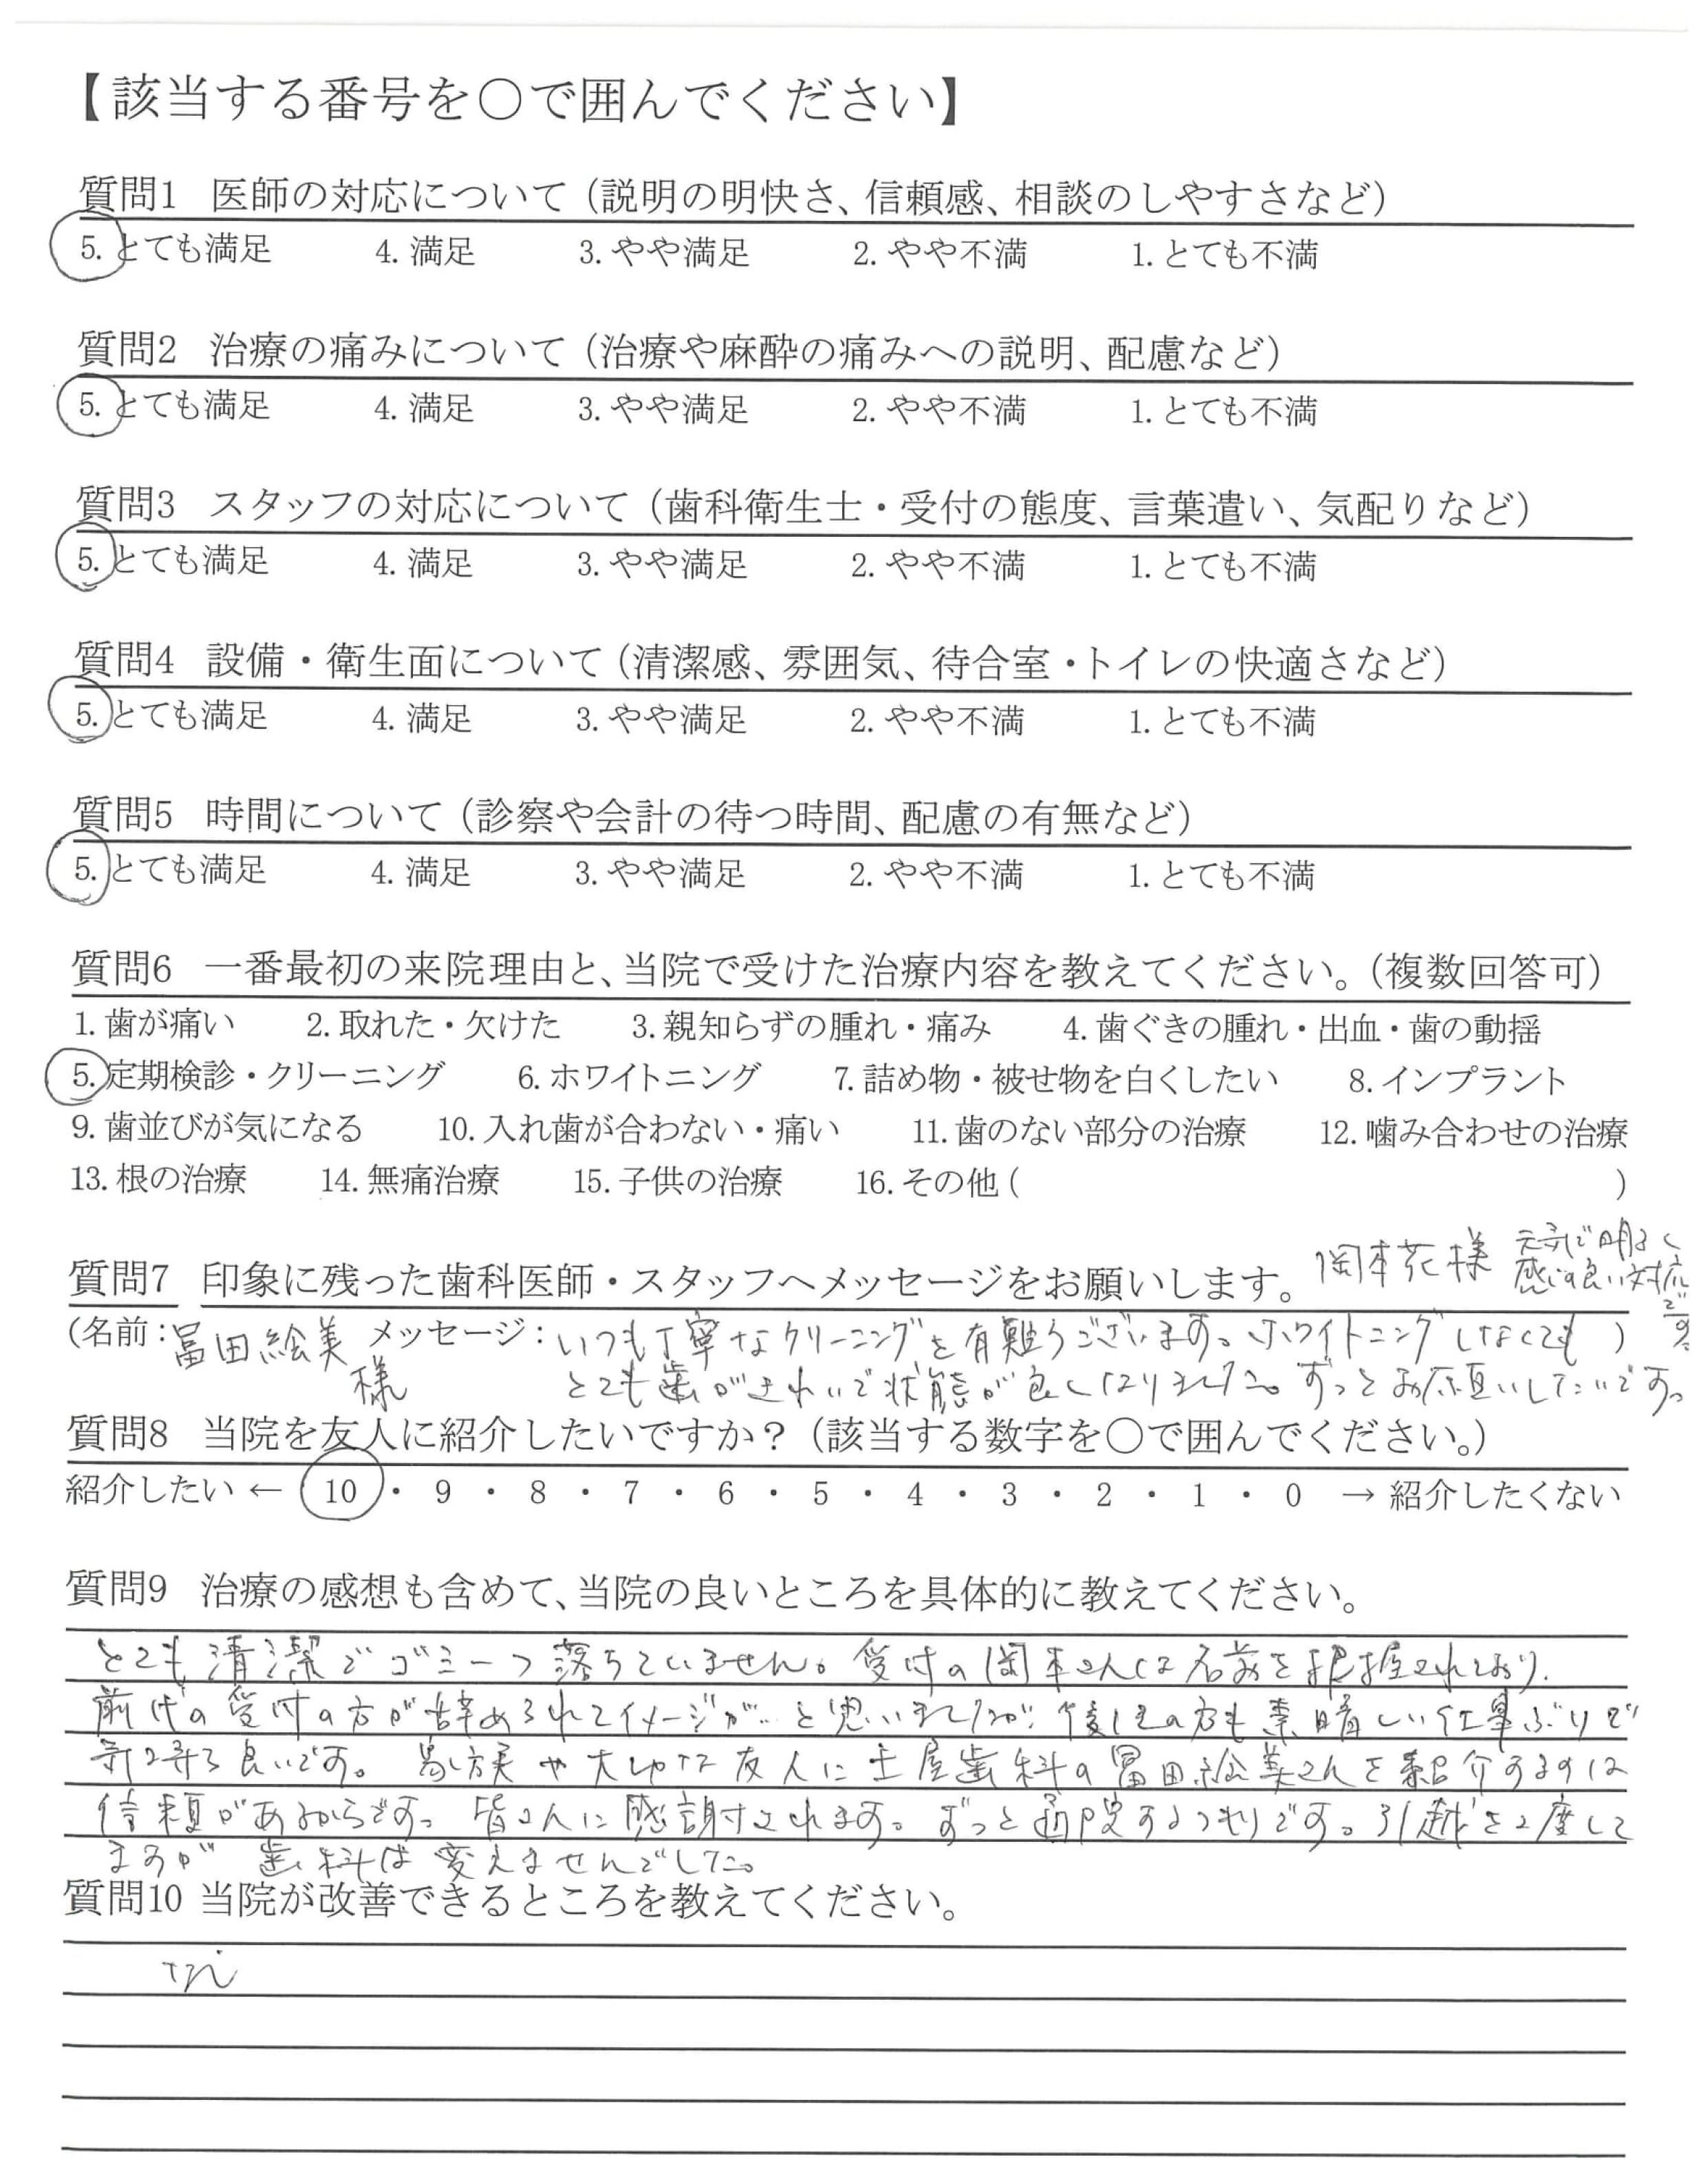 【該当する番号を〇で囲んでください】
質問1 医師の対応について（説明の明快さ、信頼感、相談のしやすさなど）
5. とても満足 4. 満足 3. やや満足 2. やや不満 1. とても不満
質問2 治療の痛みについて（治療や麻酔の痛みへの説明、配慮など）
5. とても満足 4. 満足 3. やや満足 2. やや不満 1. とても不満
質問3 スタッフの対応について（歯科衛生士・受付の態度、言葉遣い、気配りなど）
5. とても満足 4. 満足 3. やや満足 2. やや不満 1. とても不満
質問4 設備・衛生面について（清潔感、雰囲気、待合室・トイレの快適さなど）
5. とても満足 4. 満足 3. やや満足 2. やや不満 1. とても不満
質問5 時間について（診察や会計の待つ時間、配慮の有無など）
5. とても満足 4. 満足 3. やや満足 2. やや不満 1. とても不満
質問6 一番最初の来院理由と、当院で受けた治療内容を教えてください。（複数回答可）
1. 歯が痛い 2. 取れた・欠けた 3. 親知らずの腫れ・痛み 4. 歯ぐきの腫れ・出血・歯の動揺
5. 定期検診・クリーニング 6. ホワイトニング 7. 詰め物・被せ物を白くしたい 8. インプラント
9. 歯並びが気になる 10. 入れ歯が合わない・痛い 11. 歯のない部分の治療 12. 噛み合わせの治療
13. 根の治療 14. 無痛治療 15. 子供の治療 16. その他（ ）
質問7 印象に残った歯科医師・スタッフへメッセージをお願いします。 岡本花様 元気で明るく
感じの良い対応
です。
（名前：冨田絵美 メッセージ：いつも丁寧なクリーニングを有難うございます。ホワイトニングしなくても ）
様 とても歯がきれいで状態が良くなりました。ずっとお願いしたいです。
質問8 当院を友人に紹介したいですか？（該当する数字を〇で囲んでください。）
紹介したい ← 10 ・ 9 ・ 8 ・ 7 ・ 6 ・ 5 ・ 4 ・ 3 ・ 2 ・ 1 ・ 0 → 紹介したくない
質問9 治療の感想も含めて、当院の良いところを具体的に教えてください。
とても清潔でゴミ一つ落ちていません。受付の岡本さんは名前を把握されており、
前代の受付の方が辞められてイメージが…と思いましたが、後任の方も素晴しい仕事ぶりで
良いです。家族や大切な友人に土屋歯科の冨田絵美さんを紹介するのは
信頼があるからです。皆さんに感謝されます。ずっと通院するつもりです。引越を2度して
ますが歯科は変えませんでした。
質問10 当院が改善できるところを教えてください。
なし